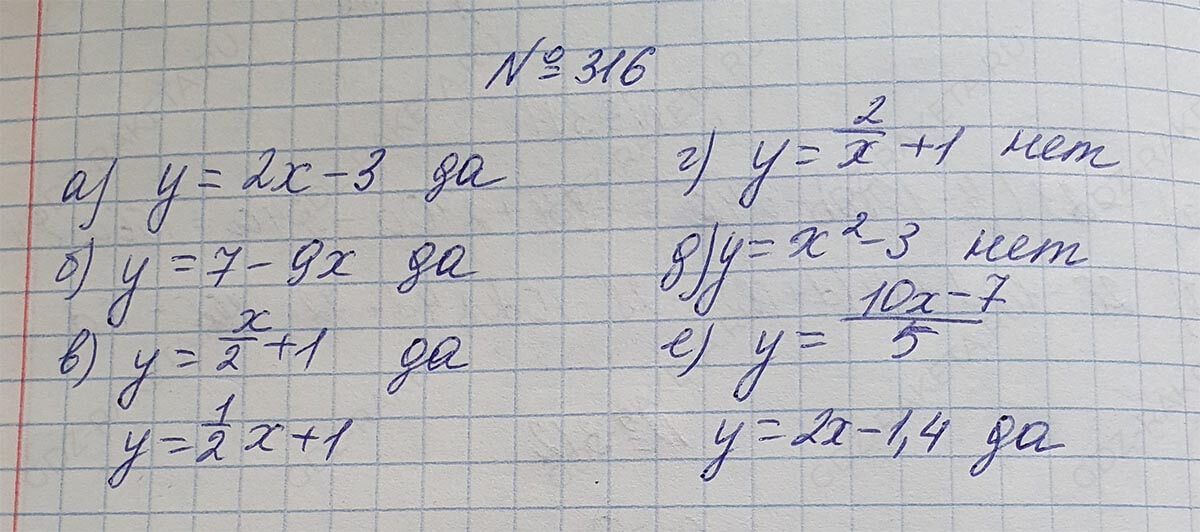 № 316
а) y = 2x - 3 да
б) y = 7 - 9x да
в) y = x/2 + 1 да
y = 1/2 x + 1
г) y = 2/x + 1 нет
д) y = x² - 3 нет
е) y = (10x - 7)/5
y = 2x - 1,4 да